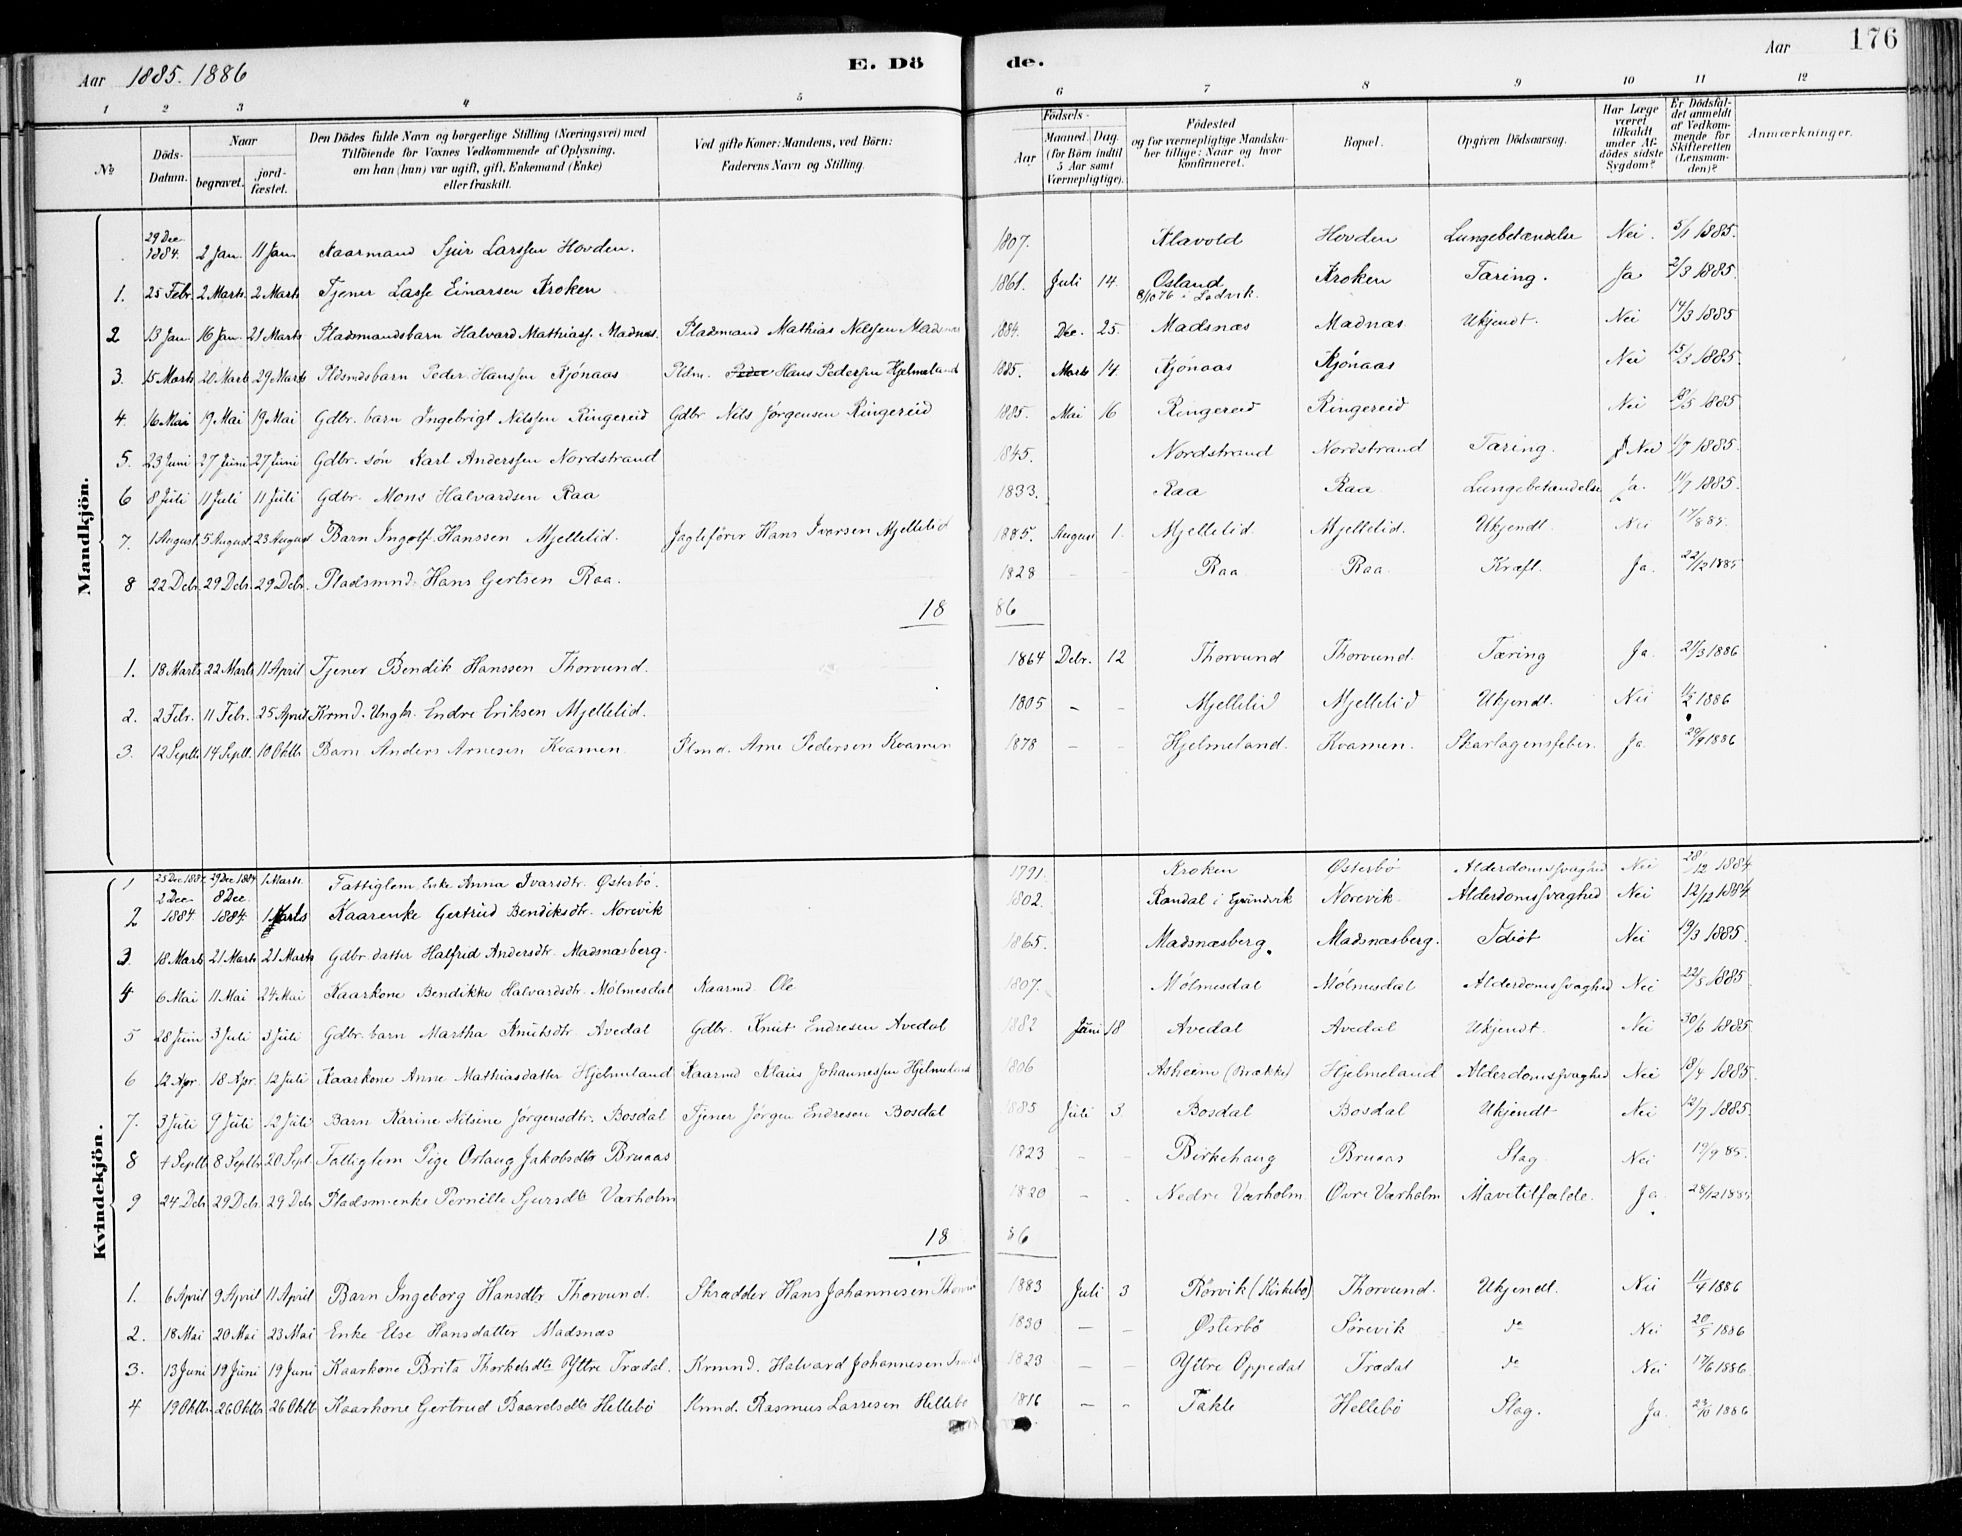 176
Aar 1885. 1886 E. Dö de. Aar
1 2 3 4 5 6 7 8 9 10 11 12
№ Döds-Datum. Naar begravet. jordfæstet. Den Dödes fulde Navn og borgerlige Stilling (Næringsvei) med Tilföiende for Voxnes Vedkommende af Oplysning, om han (hun) var ugift, gift, Enkemand (Enke) eller fraskilt. Ved gifte Koner: Mandens, ved Börn: Faderens Navn og Stilling. Födsels- Aar Maaned. Dag. (for Börn indtil 5 Aar samt Værnepligtige). Födested og for værnepligtige Mandskaber tillige: Naar og hvor konfirmeret. Bopæl. Opgiven Dödsaarsag. Har Læge været tilkaldt under Afdödes sidste Sygdom? Er Dödsfaldet anmeldt af Vedkommende for Skifteretten (Lensmanden)? Anmærkninger.
Mandkjön.
29 Dec 1884. 2 Jan. 11 Jan. Kaarmand Sjur Larssen Hovden. 1807. Klavold Hovden Lungebetændelse Nei. 5/1 1885.
1. 25 Febr. 2 Marts 2 Marts Tjener Lasse Einarsen Kroken 1861. Juli 14. Osland 8/10 76 i Ladvik. Kroken Tæring. Ja 2/3 1885.
2 13 Jan. 16 Jan. 21 Marts Pladsmandsbarn Halvard Mathiass. Madnæs. Pladsmand Mathias Nilssen Madsnæs 1884. Dec. 25. Madsnæs Madnæs Ukjendt. Nei 14/3 1885
3. 15 Marts 20 Marts 29 Marts Pldsmdsbarn Peder Hanssen Kjønaas Pldm. Peder Hans Pedersen Hjelmeland 1885. Marts 14. Kjønaas Kjønaas Nei 15/3 1885.
4. 16 Mai 19 Mai 19 Mai Gdbr. barn Ingebrigt Nilssen Ringereid Gdbr Nils Jørgensen Ringereid 1885. Mai 16 Ringereid Ringereid Nei /5 1885
5. 23 Juni 27 Juni 27 Juni Gdbr. søn Karl Anderssen Nordstrand 1845. Nordstrand Nordstrand Tæring. Nei 1/7 1885.
6 8 Juli 11 Juli 11 Juli Gdbr. Mons Halvardsen Raa 1833. Raa Raa Lungebetændelse Ja. 11/7 1885.
7. 1 August. 5 August. 23 August Barn Ingolf Hanssen Mjellelid. Jagtefører Hans Iversen Mjellelid 1885. August 1. Mjellelid. Mjellelid. Ukjendt. Nei 17/8 85.
8 22 Debr. 29 Debr. 29 Debr. Pladsmnd. Hans Gertsen Raa. 1828 – – Raa Raa. Kræft. Ja. 22/12 1885
18 86
1. 18 Marts 22 Marts 11 April Tjener Bendik Hanssen Thorvund. 1864 Debr. 12 Thorvund Thorvund. Tæring Ja. 21/3 1886
2. 2 Febr. 11 Febr. 25 April Krmd. Ungk. Endre Eriksen Mjellelid. 1805 – – Mjellelid Mjellelid Ukjendt. Nei 11/2 1886
3. 12 Septb. 14 Septb. 10 Oktb. Barn Anders Arnesen Kvamen. Plmd. Arne Pedersen Kvamen 1878 – – Hjelmeland. Kvamen. Skarlagensfeber. Ja 29/9 1886
Kvindekjön.
1 25 Dec 1884. 29 Dec 1884 1 Marts. Fattiglem, Enke Anna Ivarsdtr. Østerbø. 1791. Kroken Østerbø Alderdomssvaghed Nei 28/12 1884
2 2 Dec 1884. 8 Dec 1884. 1 Marts Kaarenke Gertrud Bendiksdtr. Norevik 1802. Randal i Norevik. Alderdomssvaghed Nei 12/12 1884
3. 18 Marts 21 Marts 21 Marts Gdbr. datter Halfrid Andersdtr. Madsnæsberg. 1865. Madsnæsberg. Madsnæsberg. Idiot Nei 19/3 1885.
4 6 Mai 11 Mai 24 Mai Kaarkone Bendikke Halvardsdtr. Mølmesdal Kaarmd. Ole 1807. Mølmesdal Mølmesdal Alderdomssvaghed Nei 22/5 1885.
5 28 Juni 3 Juli 3 Juli Gdbr. barn Martha Knutsdtr. Avedal Gdbr. Knut Endresen Avedal 1882 Juni 18 Avedal Avedal Ukjendt. Nei 30/6 1885.
6 12 Apr. 18 Apr. 12 Juli Kaarkone Anne Mathiasdatter Hjelmeland Kaarmd Klaus Johannessen Hjelmeland 1806 Asheim (Brække) Hjelmeland Alderdomssvaghed Nei 18/4 1885.
7. 3 Juli 9 Juli 12 Juli Barn Karine Nilsine Jørgensdtr. Bosdal Tjener Jørgen Endresen Bosdal 1885 Juli 3. Bosdal Bosdal Ukjendt Nei 12/7 1885.
8 4 Septb. 8 Septbr. 20 Sept. Fattiglem Pige Orlaug Jakobsdtr Bruaas 1823 – – Birkehaug Bruaas Slag. Nei 19/9 85.
9 24 Debr 29 Debr. 29 Debr Pladsmenke Pernille Sjursdtr Værholm 1820 – – Nedre Værholm Øvre Værholm Mavetilfælde. Ja. 28/12 1885
18 86
1. 6 April 9 April 11 April Barn Ingeborg Hansdtr Thorvund. Skrædder Hans Johannesen 1883 Juli 3 Rørvik (Kirkebø) Thorvund. Ukjendt. Nei 11/4 1886
2. 18 Mai 20 Mai 23 Mai Enke Else Hansdatter Madsnæs 1830 – – Østerbø Sørevik do Nei 20/5 1886
3. 13 Juni 19 Juni 19 Juni Kaarkone Brita Thorkelsdtr Yttre Trædal. Krmnd. Halvard Johannesen 1823 – – Yttre Oppedal Trædal do Nei 17/6 1886
4 19 Oktbr. 26 Oktbr 26 Oktb Kaarkone Gertrud Baardsdtr Hellebø Krmd. Rasmus Lassesen Hellebø 1816 – – Takle Hellebø Slag. Ja. 23/10 1886